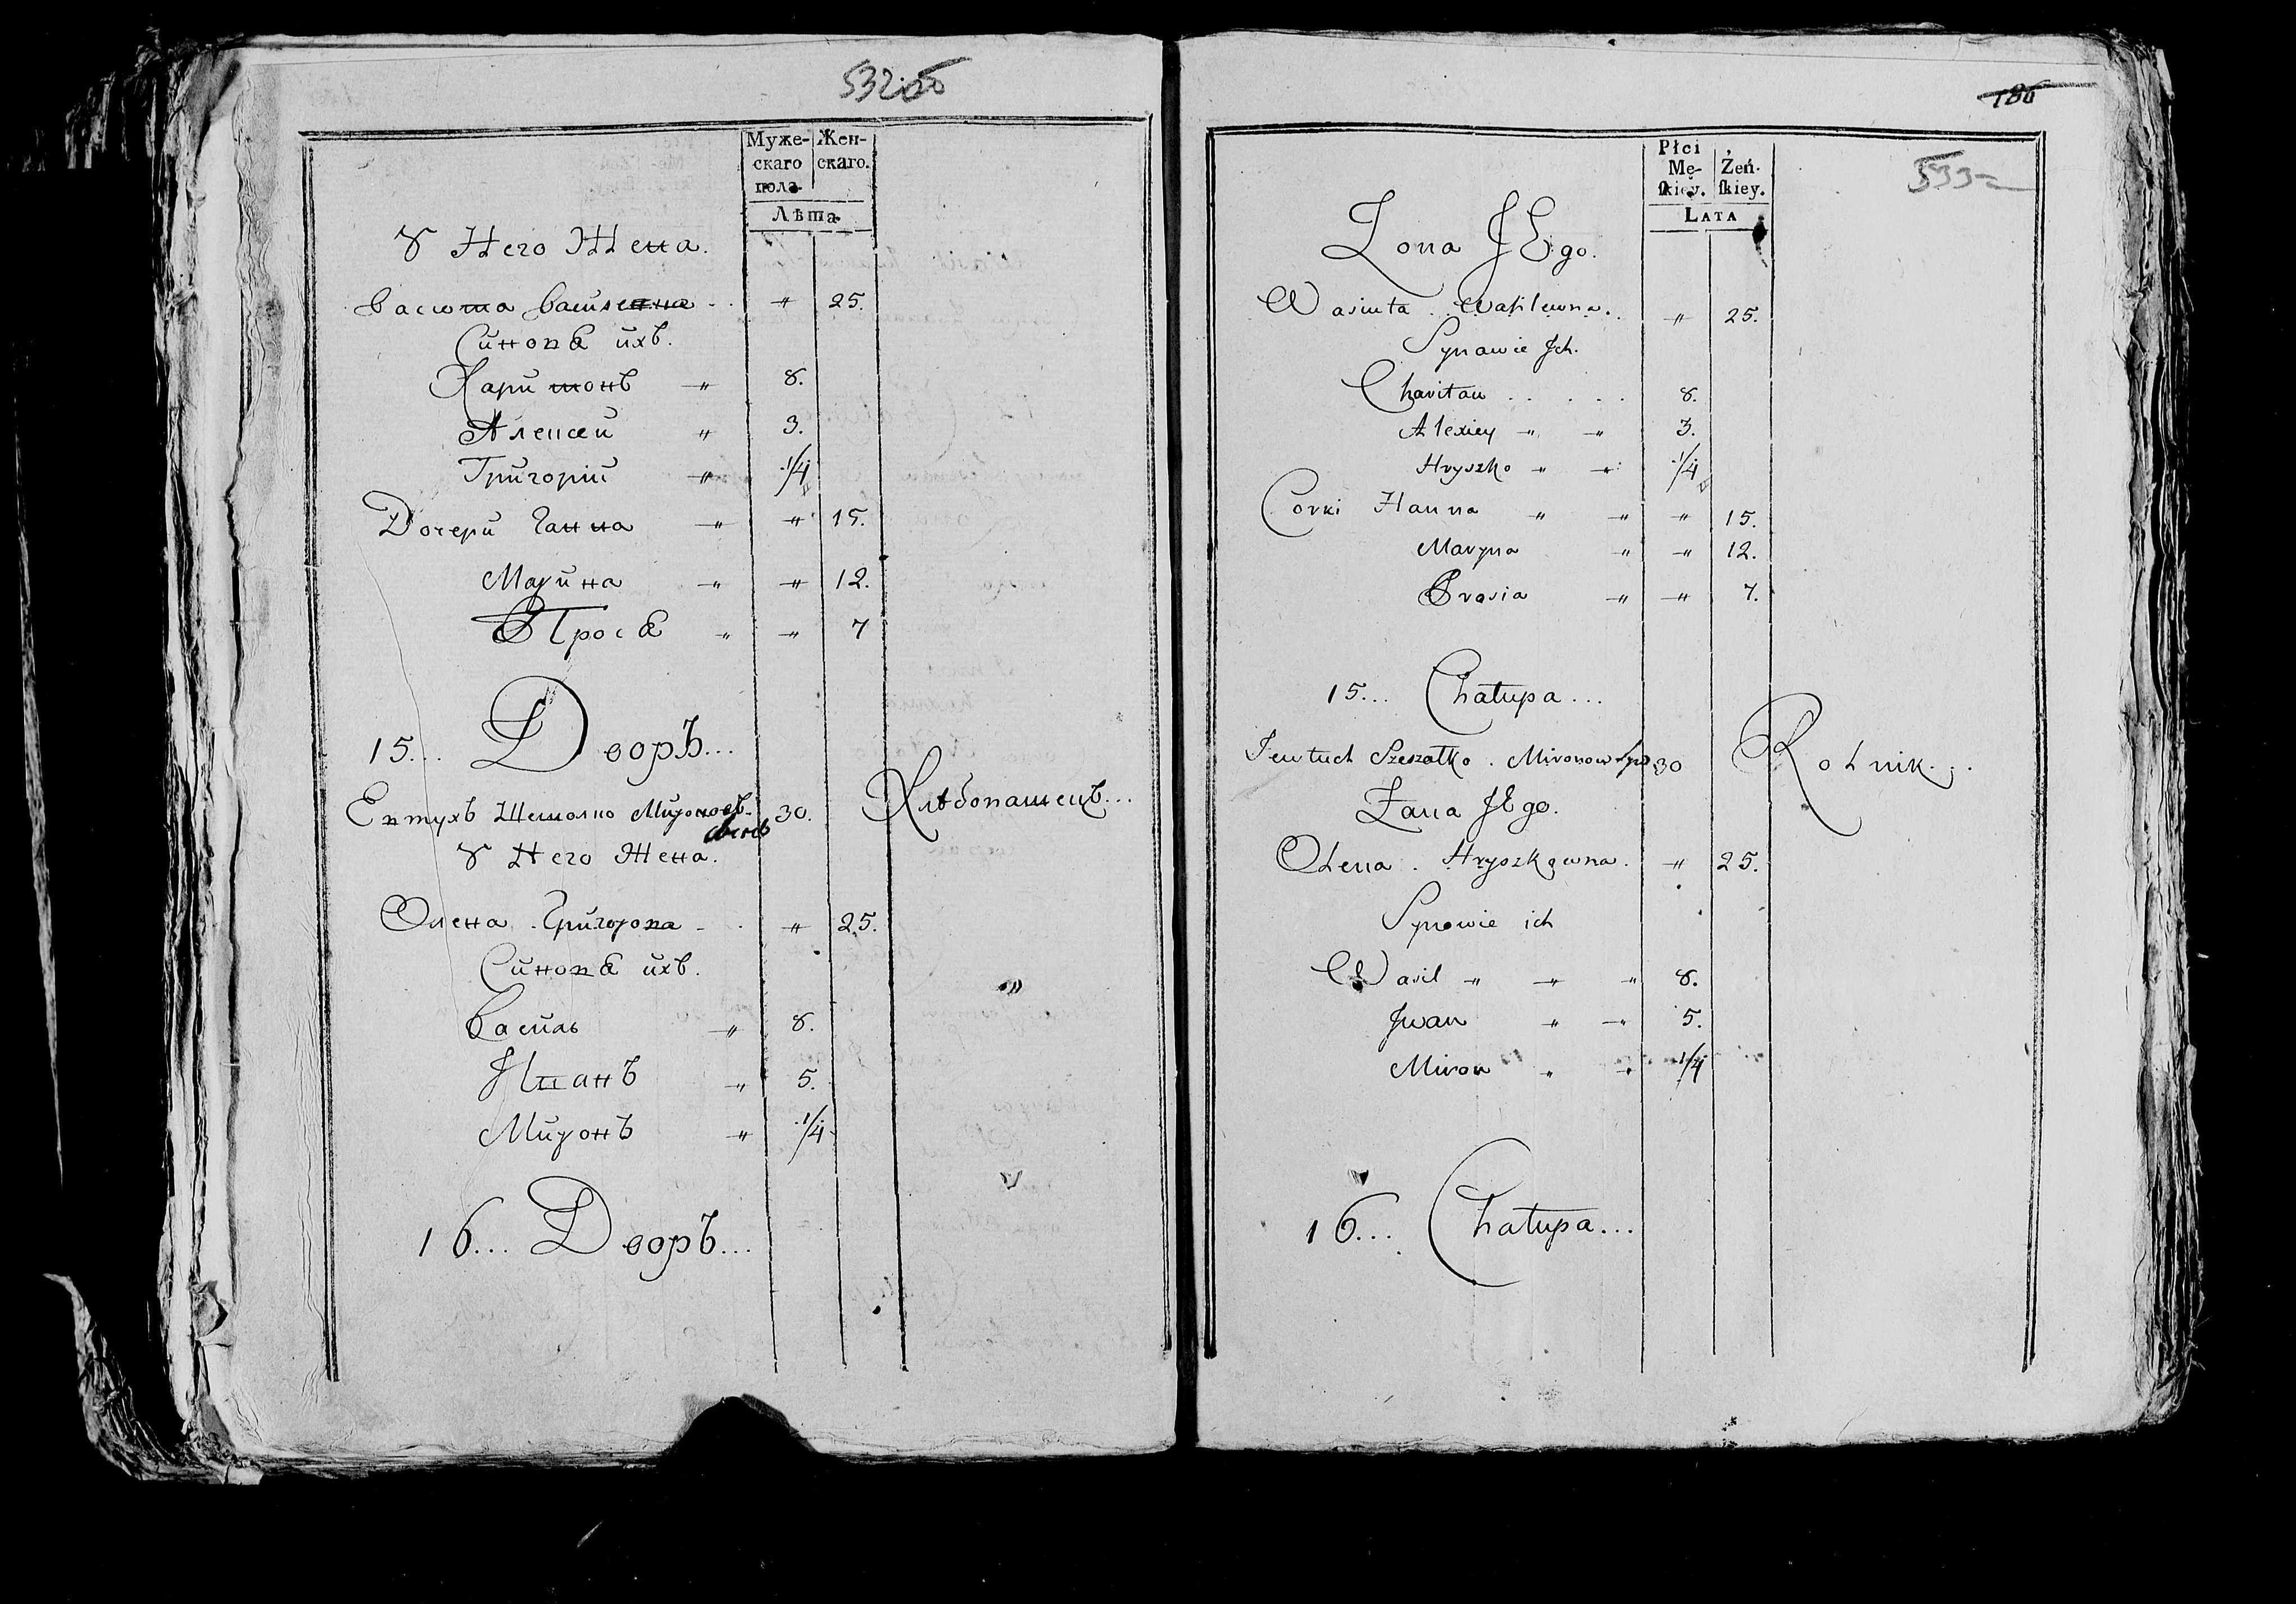 532 об
Муже-
скаго
пола
Жен-
скаго.
Лѣта
У Него Жена.
Васюта Василевна - . " 25.
Синовѣ ихъ.
Харитонъ " 8.
Алексей " 3.
Григорій " 1/4
Дочери Ганна " " 15.
Марина " " 12.
Просѣ " " 7
15... Дворъ...
Евтухъ Шешолко Мироновъ 30. Хлѣбопашецъ...
сынъ
У Него Жена.
Олена . Григорова - . " 25.
Синовѣ ихъ.
Василь " 8.
Иванъ " 5.
Миронъ " 1/4
16... Дворъ...
186
533
Płci
Mę-
ſkiey.
Żeń-
ſkiey.
LATA
Zona JEgo.
Wasiuta . Wasilewna . " 25.
Synowie Jch.
Chariton . . . . . 8.
Alexiey " " 3.
Hryszko " " 1/4
Corki Hanna " " " 15.
Maryna " " 12.
Prosia " " 7.
15... Chałupa...
Jewtuch Szeszołko . Mironow Syn 30 Rolnik...
Zona JEgo.
Olena . Hryszkowna . " 25.
Synowie ich
Wasil " " " 8.
Jwan " " 5.
Miron " " 1/4
16... Chałupa...